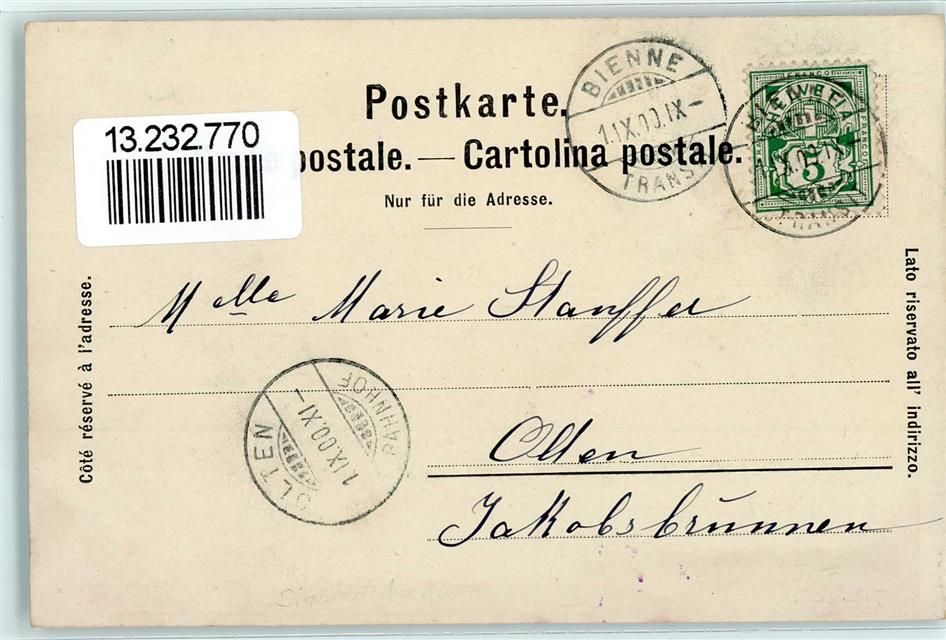 Postkarte.
13.232.770
e postale. — Cartolina postale.
Nur für die Adresse.
BIENNE
1.IX.00.IX–
TRANS.
FRANCO
HELVETIA
5
TRANS.
Côté réservé à l'adresse.
Lato riservato all' indirizzo.
Melle Marie Stauffer
OLTEN
1.IX.00.XI–
BAHNHOF
Olten
Jakobsbrunnen